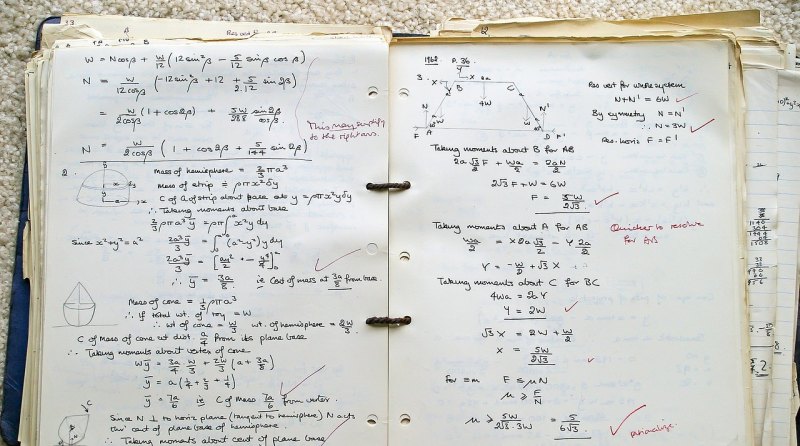 33
W = Ncosβ + W/12 (12 sin²β - 5/12 sinβ cosβ)
N = W/12cosβ (-12sin²β + 12 + 5/2.12 sin 2β)
= W/2cosβ (1 + cos2β) + 5W/288 sin2β/cosβ.
N = W/2cosβ (1 + cos2β + 5/144 sin2β)
This may simplify
to the right ans.
2.
Mass of hemisphere = 2/3 πa³
Mass of strip ≑ ρπx²δy
C of G of strip about base at y = ρπx²yδy
∴ Taking moments about base
2/3 ρπa³ȳ = ∫ρπx²y dy
Since x²+y²=a²
2a³ȳ/3 = ∫(a²-y²)y dy
2a³ȳ/3 = [ay²/2 - y⁴/4]
∴ ȳ = 3a/8 ie Cent of mass at 3a/8 from base.
Mass of cone = 1/3 ρπa³
∴ If total wt. of toy = W
∴ wt of cone = W/3 wt. of hemisphere = 2W/3
C of Mass of cone at dist. a/4 from its plane base
∴ Taking moments about vertex of cone
Wȳ = 3a/4 W/3 + 2W/3 (a + 3a/8)
ȳ = a(1/4 + 2/3 + 1/4)
ȳ = 7a/6 ie C of Mass 7a/6 from vertex.
Since N ⊥ to horiz plane (tangent to hemisphere) N acts
thro' cent of plane base of hemisphere.
∴ Taking moments about cent of plane base
1968 P. 36
3.
Y X 2a
B C
4W
N N'
W W
F A D F'
Res vert for whole system
N + N' = 6W
By symmetry N = N'
∴ N = 3W
Res. horiz F = F'
Taking moments about B for AB
2a√3/2 F + Wa/2 = 2aN/2
2√3F + W = 6W
F = 5W/2√3
Taking moments about A for AB
Quicker to resolve
for AB
Wa/2 = X2a√3/2 - Y 2a/2
Y = -W/2 + √3 X
Taking moments about C for BC
4Wa = 2aY
Y = 2W
√3X = 2W + W/2
X = 5W/2√3
for =m F ≤ μN
μ ≥ F/N
μ ≥ 5W/2√3.3W = 5/6√3
rationalize.